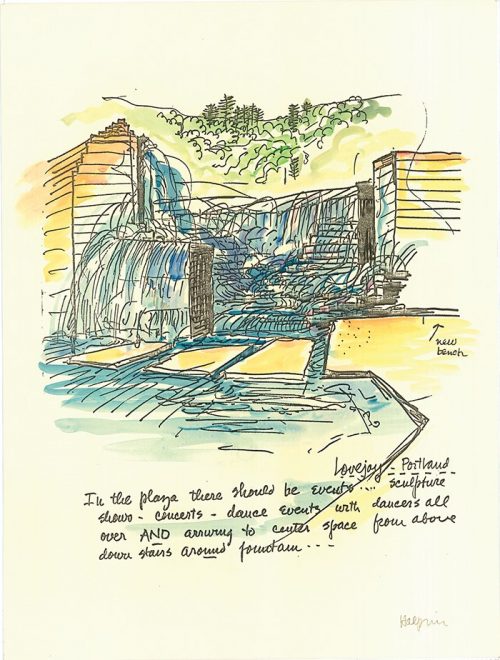 new
bench
Lovejoy - Portland
In the plaza there should be events ... sculpture
shows - concerts - dance events with dancers all
over AND arriving to center space from above
down stairs around fountain ---
Halprin